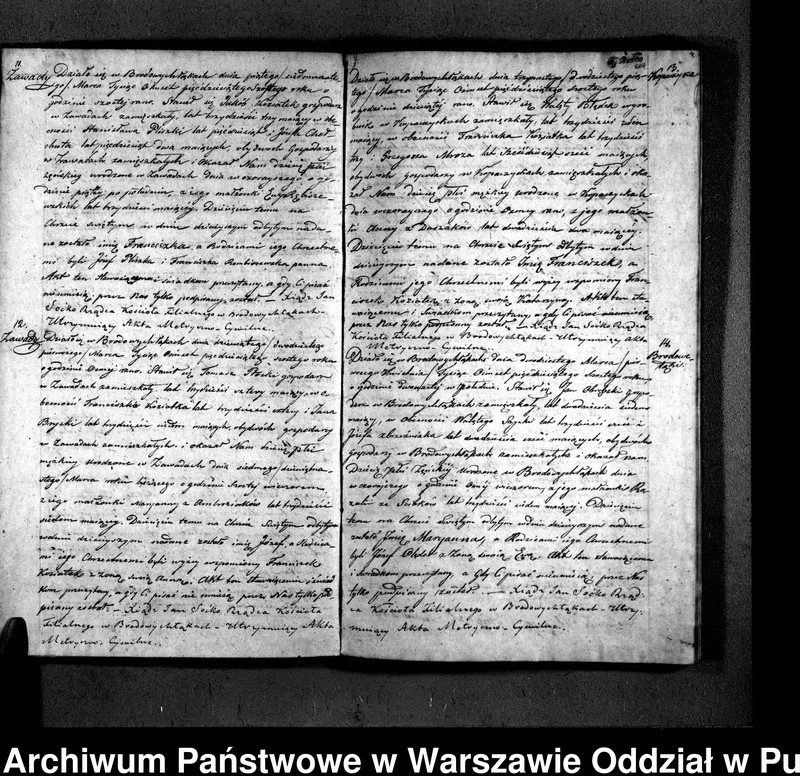 11.
Zawady
Działo się w Brodowychłąkach dnia piątego/siedmnaste-
go/ Marca Tysiąc Ośmset pięćdziesiątego szóstego roku o
godzinie szóstej rano. Stawił się Jakób Koziatek gospodarz
w Zawadach zamięszkały, lat trzydzieści trzy mający w ob-
ecności Stanisława Pliszki lat pięćdziesiąt i Józefa
lat pięćdziesiąt dwa mających, obydwoch Gospodarzy
w Zawadach zamięszkałych i okazał Nam dziecię płci
żęńskiej urodzone w Zawadach dnia wczorayszego o go-
dzinie piątej po południu z jego małżonki
lat trzydzieści mającej. Dziecięciu temu na
Chrzcie świętym w dniu dzisieyszym odbytym nada-
ne zostało imię Franciszka, a Rodzicami jego Chrzestne-
mi byli Józef Pliszka i Franciszka panna.
Akt ten stawającemu i świadkom przeczytany, a gdy Ci pisać
nieumieją przez Nas tylko podpisany został. – Ksiądz Jan
Soćko Rządca Kościoła Filialnego w Brodowychłąkach.
Utrzymujący Akta Metryczno-Cywilne.
12.
Zawady
Działo się w Brodowychłąkach dnia dziewiątego/dwudziestego
pierwszego/ Marca Tysiąc Ośmset pięćdziesiątego szóstego roku
o godzinie ósmej rano. Stawił się Tomasz gospodarz
w Zawadach zamieszkały lat trzydzieści cztery mający, w o-
becności Franciszka Koziatka lat trzydzieści cztery i Jana
lat trzydzieści siedm mających, obydwoch gospodarzy
w Zawadach zamieszkałych, i okazał Nam dziecię płci
męzkiej urodzone w Zawadach dnia siódmego/dziewiętna-
stego/ Marca roku bieżącego o godzinie szóstej wieczorem
z jego małżonki Maryanny z lat trzydzieści
siedem mającej. Dziecięciu temu na Chrzcie Świętym odbytym
w dniu dzisieyszym nadane zostało imię Józef a Rodzica-
mi jego Chrzestnemi byli wyżej wspomniony Franciszek
Koziatek z żoną swoią Anną. Akt ten stawającemu i świad-
kom przeczytany, a gdy Ci pisać nie umieją przez Nas tylko pod-
pisany został. – Ksiądz Jan Soćko Rządca Kościoła
Filialnego w Brodowychłąkach – Utrzymujący Akta
Metryczno-Cywilne.
13.
Kopaczyska
Działo się w Brodowychłąkach dnia trzynastego/dwudziestego pią-
tego/ Marca Tysiąc Ośmset pięćdziesiątego szóstego roku
o godzinie dziewiątej rano. Stawił się Walęty wyro-
bnik w Kopaczyskach zamięszkały, lat trzydzieści
mający, w obecności Franciszka Koziatka lat trzydzieści
trzy i Grzegorza Mroza lat sześćdziesiąt sześć mających,
obydwoch gospodarzy w Kopaczyskach zamięszkałych i oka-
zał Nam dziecię płci męzkiej urodzone w Kopaczyskach
dnia wczorayszego o godzinie ósmej rano, z jego małżon-
ki Anny z lat dwadzieścia dwa mającej.
Dziecięciu temu na Chrzcie Świętym odbytym w dniu
dzisieyszym nadane zostało Imię Franciszek, a
Rodzicami jego Chrzestnemi byli wyżej wspomniony Fran-
ciszek Koziatek z żoną swoią Katarzyną. Akt ten sta-
wającemu i świadkom przeczytany, a gdy Ci pisać nieumieją
przez Nas tylko podpisany został. – Ksiądz Jan Soćko Rządca
Kościoła Filialnego w Brodowychłąkach – Utrzymujący Akta
Metryczno-Cywilne.
14.
Brodowe
Łąki
Działo się w Brodowychłąkach dnia dwudziestego Marca/pier-
wszego Kwietnia/ Tysiąc Ośmset pięćdziesiątego szóstego roku,
o godzinie w południe. Stawił się Jan gospo-
darz w Brodowychłąkach zamięszkały, lat dwadzieścia siedem
mający, w obecności Walętego lat trzydzieści sześć i
Józefa lat dwadzieścia sześć mających, obydwoch
gospodarzy w Brodowychłąkach zamieszkałych i okazał nam
Dziecię płci żęńskiej urodzone w Brodowychłąkach dnia
wczorayszego o godzinie ósmej wieczorem, z jego małżonki Ro-
zalii ze lat trzydzieści jeden mającej. Dziecięciu
temu na Chrzcie Świętym odbytym w dniu dzisieyszym nadane
zostało Imię Maryanna, a Rodzicami jego Chrzestnemi
byli Józef z żoną swoią Ewą. Akt ten stawającemu
i świadkom przeczytany a gdy Ci pisać nieumieją, przez Nas
tylko podpisany został. – Ksiądz Jan Soćko Rząd-
ca Kościoła Filialnego w Brodowychłąkach – Utrzy-
mujący Akta Metryczno-Cywilne.
Archiwum Państwowe w Warszawie Oddział w Pu